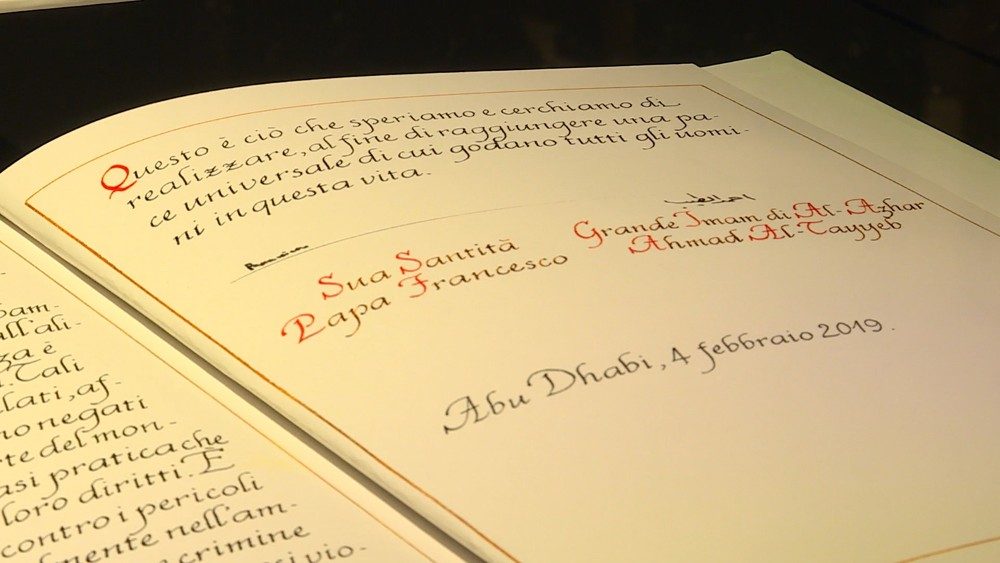 bam-
all'ali-
za è
. Tali
lati, af-
no negati
rte del mon-
asi pratica che
loro diritti. È
contro i pericoli
lmente nell'am-
crimine
si vio-
Questo è ciò che speriamo e cerchiamo di
realizzare, al fine di raggiungere una pa-
ce universale di cui godano tutti gli uomi-
ni in questa vita.
Sua Santità
Papa Francesco
Grande Imam di Al-Azhar
Ahmad Al-Tayyeb
Abu Dhabi, 4 febbraio 2019.